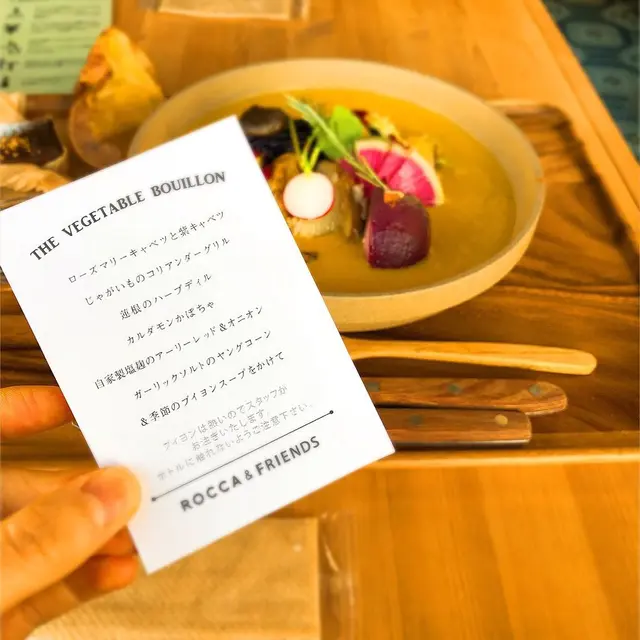 THE VEGETABLE BOUILLON
ローズマリーキャベツと紫キャベツ
じゃがいものコリアンダーグリル
蓮根のハーブディル
カルダモンかぼちゃ
自家製塩麹のアーリーレッド&オニオン
ガーリックソルトのヤングコーン
&季節のブイヨンスープをかけて
ブイヨンは熱いのでスタッフが
お注ぎいたします。
ボトルに触れないようご注意下さい。
ROCCA & FRIENDS